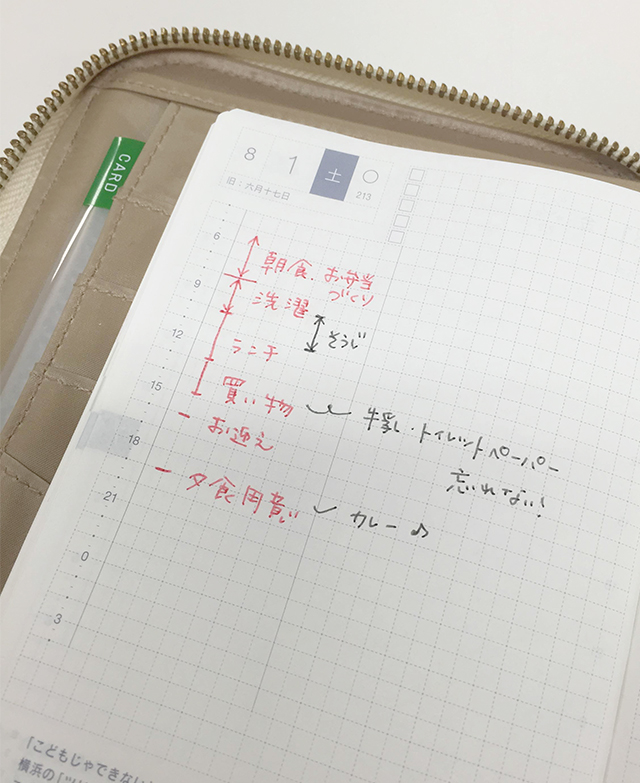 CARD
8 1 土 ○
旧：六月十七日 213
6
朝食、お弁当
づくり
9
洗濯
そうじ
12
ランチ
15
買い物
牛乳・トイレットペーパー
忘れてない!
お迎え
18
夕食用意
カレー♪
21
0
3
「こどもじゃできない
横浜の[ツリ